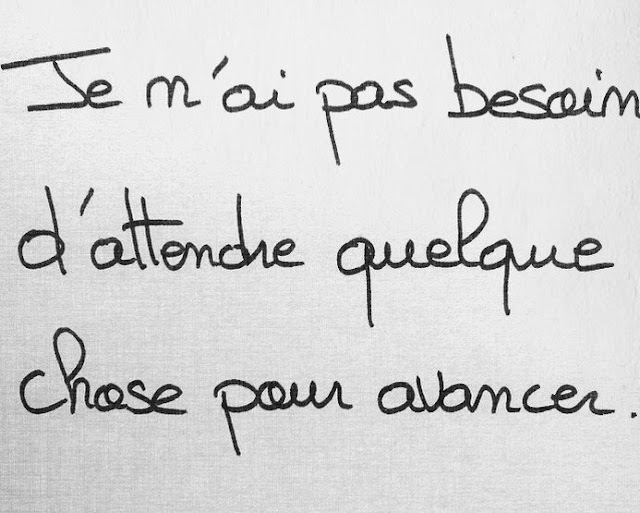 Je n'ai pas besoin
d'attendre quelque
chose pour avancer.